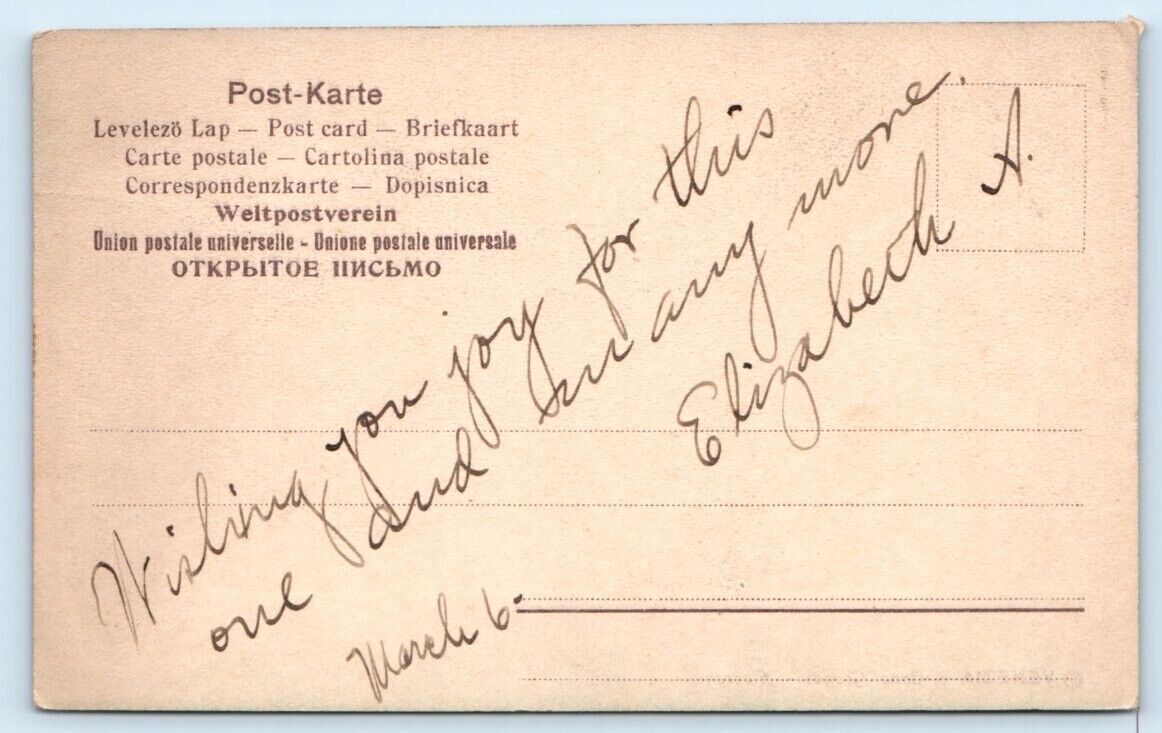 Post-Karte
Levelezö Lap — Post card — Briefkaart
Carte postale — Cartolina postale
Correspondenzkarte — Dopisnica
Weltpostverein
Union postale universelle - Unione postale universale
ОТКРЫТОЕ ПИСЬМО
Wishing you joy for this
one and many more.
Elizabeth A.
March 6-